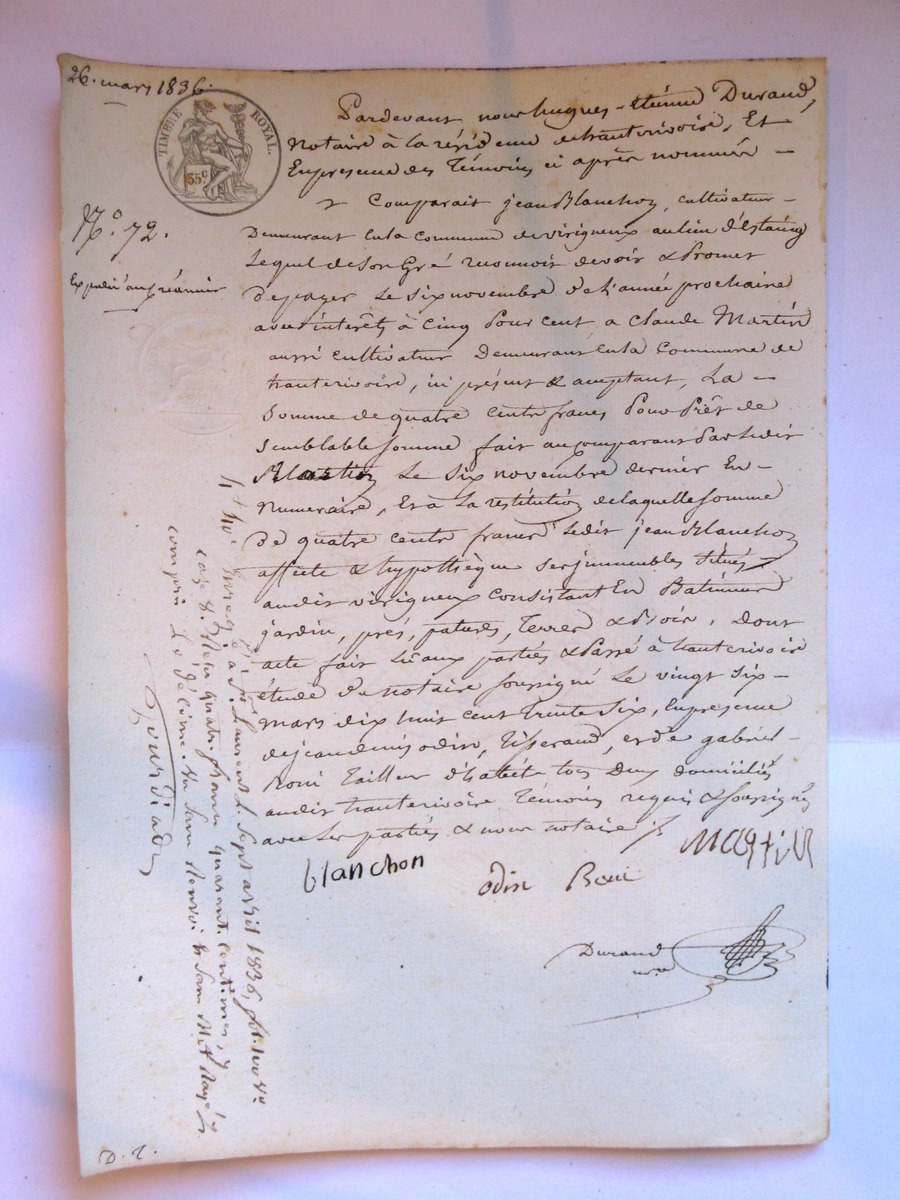 26. mars 1836.
TIMBRE ROYAL.
35c
No. 72.
Pardevant nous hugues-étienne Durand,
Notaire à la résidence de hauterivoire, Et
En presence des Témoins ci après nommés —
Comparait jean Blanchon, cultivateur —
Demeurant en la commune de virigneux au lieu d'Estaing
Lequel de Son Gré reconnoit devoir & Promet
De payer Le Six novembre de l'année prochaine
avec intérêts à Cinq Pour cent a claude Martin
aussi cultivateur Demeurant en la Commune de
hauterivoire, ici présent & acceptant, La —
Somme de quatre cents francs Pour Prêt de
Semblable Somme fait au comparant Par ledit
Martin Le Six novembre dernier En —
Numeraire, Et à La restitution de laquelle Somme
De quatre cents francs Ledit jean Blanchon
affecte & hypothèque Ses immeubles Situés
audit virigneux Consistant En Batiments
jardin, prés, patures, Terres & Bois, Dont
acte fait Lu aux parties & Passé à hauterivoire
étude Du notaire soussigné Le vingt Six —
Mars dix huit cent trente Six, En presence
de jean denis odin, Tisserand, et de gabriel —
Tailleur d'habits tous Deux domiciliés
audit hauterivoire Témoins requis & soussignés
avec Les parties & nous notaire
Blanchon
Martin
odin
Durand
nre
Enregé à St. Laurent le Sept avril 1836, fol.
case 8. Reçu quatre francs quarante centimes, y
compris Le décime. Un Sans Renvoi & Sans Mot Rayé
D. R.